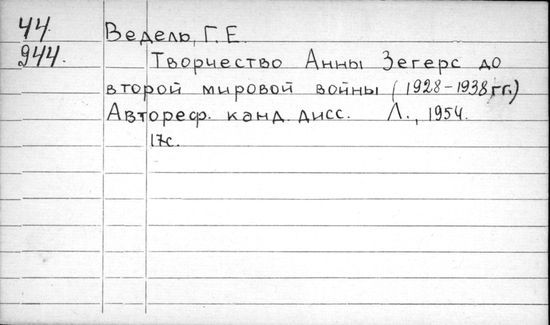 44 Ведель, Г.Е.
944. Творчество Анны Зегерс до
второй мировой войны (1928-1938 гг.)
Автореф. канд. дисс. Л., 1954.
17с.